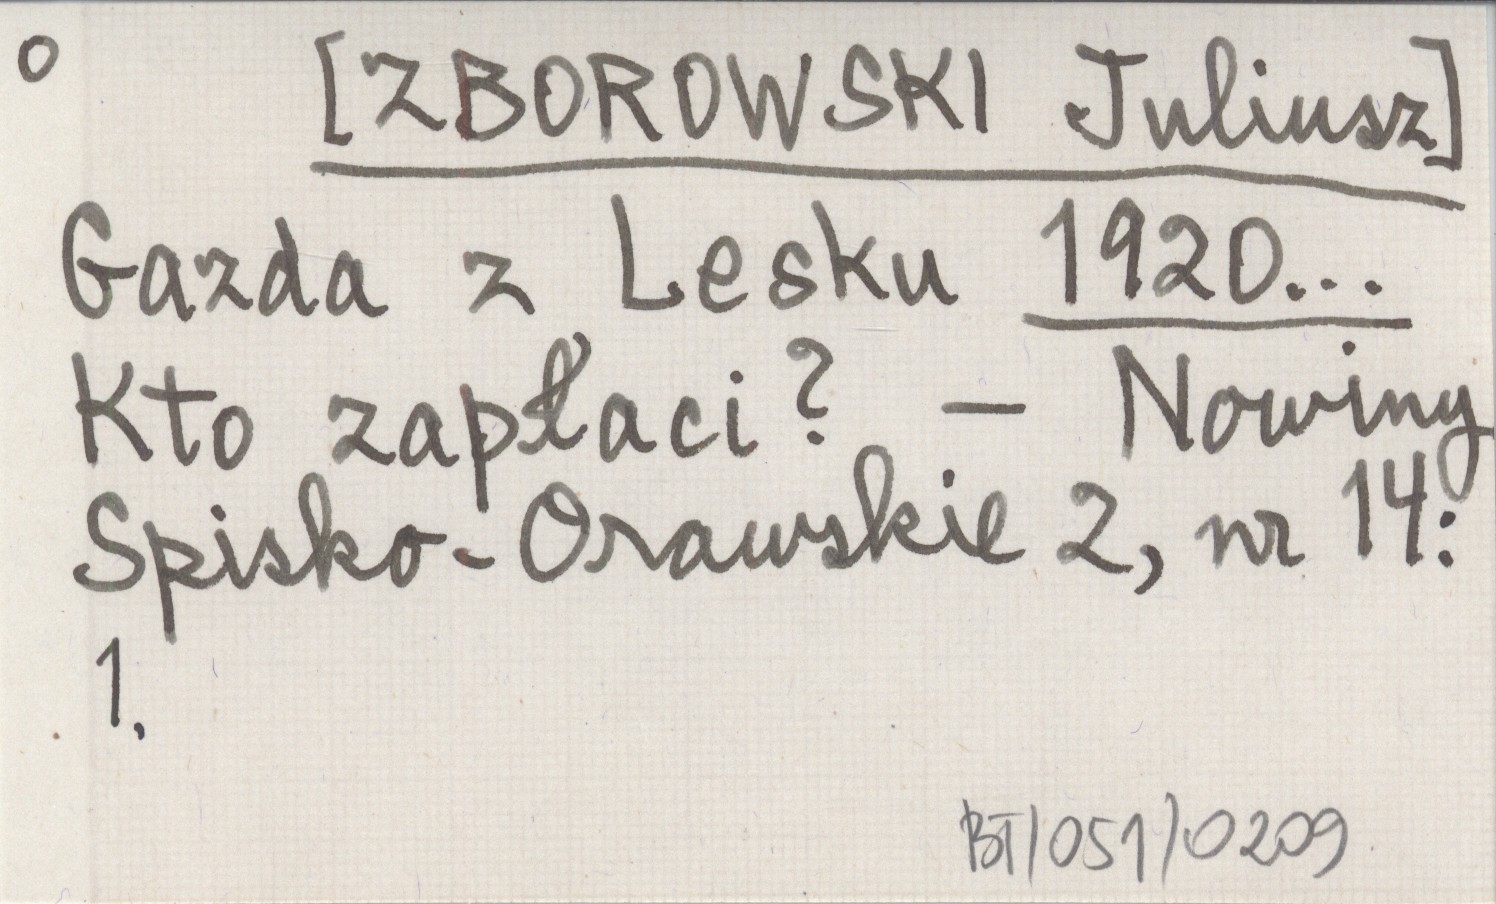 o [ZBOROWSKI Juliusz]
Gazda z Lesku 1920...
Kto zapłaci? – Nowiny
Spisko-Orawskie 2, nr 14:
1.
BT/051/0209